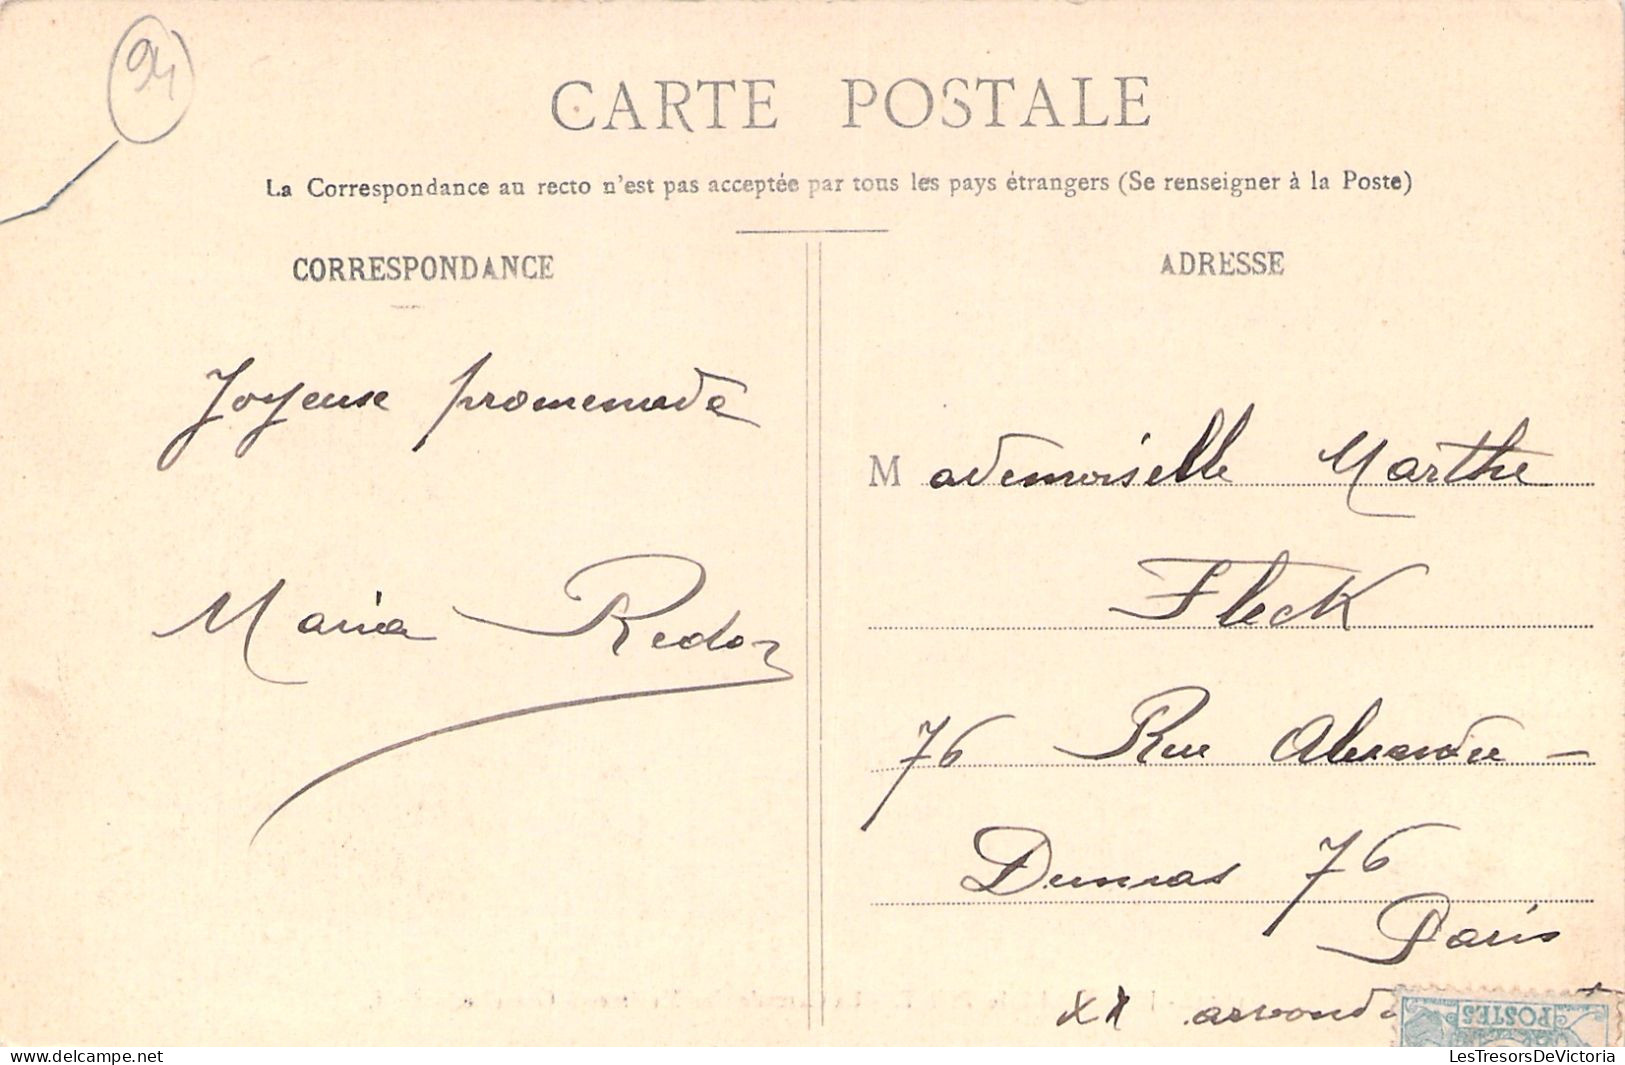 94
CARTE POSTALE
La Correspondance au recto n'est pas acceptée par tous les pays étrangers (Se renseigner à la Poste)
CORRESPONDANCE
Joyeuse promenade
Maria Redon
ADRESSE
Mademoiselle Marthe
Fleck
76 Rue Alexandre -
Dumas 76
Paris
XX arrondt
POSTES
LesTresorsDeVictoria